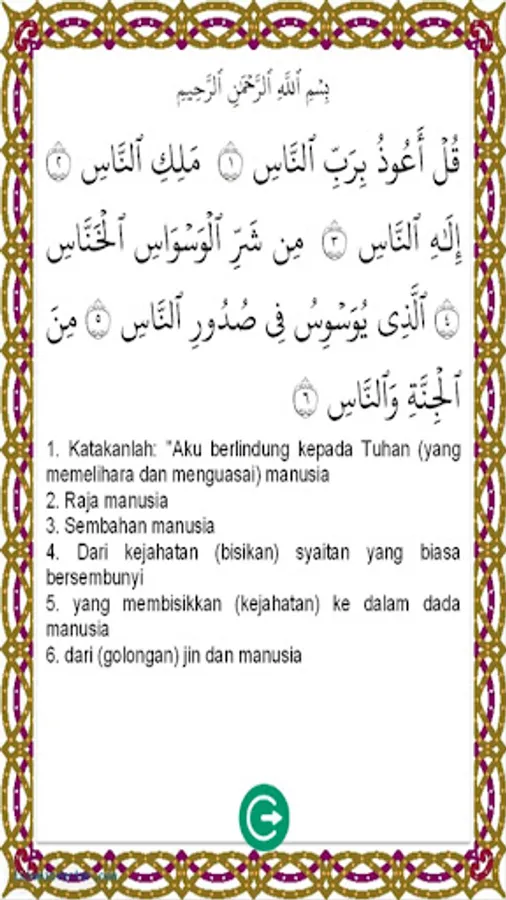 بِسْمِ ٱللَّهِ ٱلرَّحْمَٰنِ ٱلرَّحِيمِ
قُلْ أَعُوذُ بِرَبِّ ٱلنَّاسِ ١ مَلِكِ ٱلنَّاسِ ٢
إِلَٰهِ ٱلنَّاسِ ٣ مِن شَرِّ ٱلْوَسْوَاسِ ٱلْخَنَّاسِ
٤ ٱلَّذِى يُوَسْوِسُ فِى صُدُورِ ٱلنَّاسِ ٥ مِنَ
ٱلْجِنَّةِ وَٱلنَّاسِ ٦
1. Katakanlah: "Aku berlindung kepada Tuhan (yang
memelihara dan menguasai) manusia
2. Raja manusia
3. Sembahan manusia
4. Dari kejahatan (bisikan) syaitan yang biasa
bersembunyi
5. yang membisikkan (kejahatan) ke dalam dada
manusia
6. dari (golongan) jin dan manusia